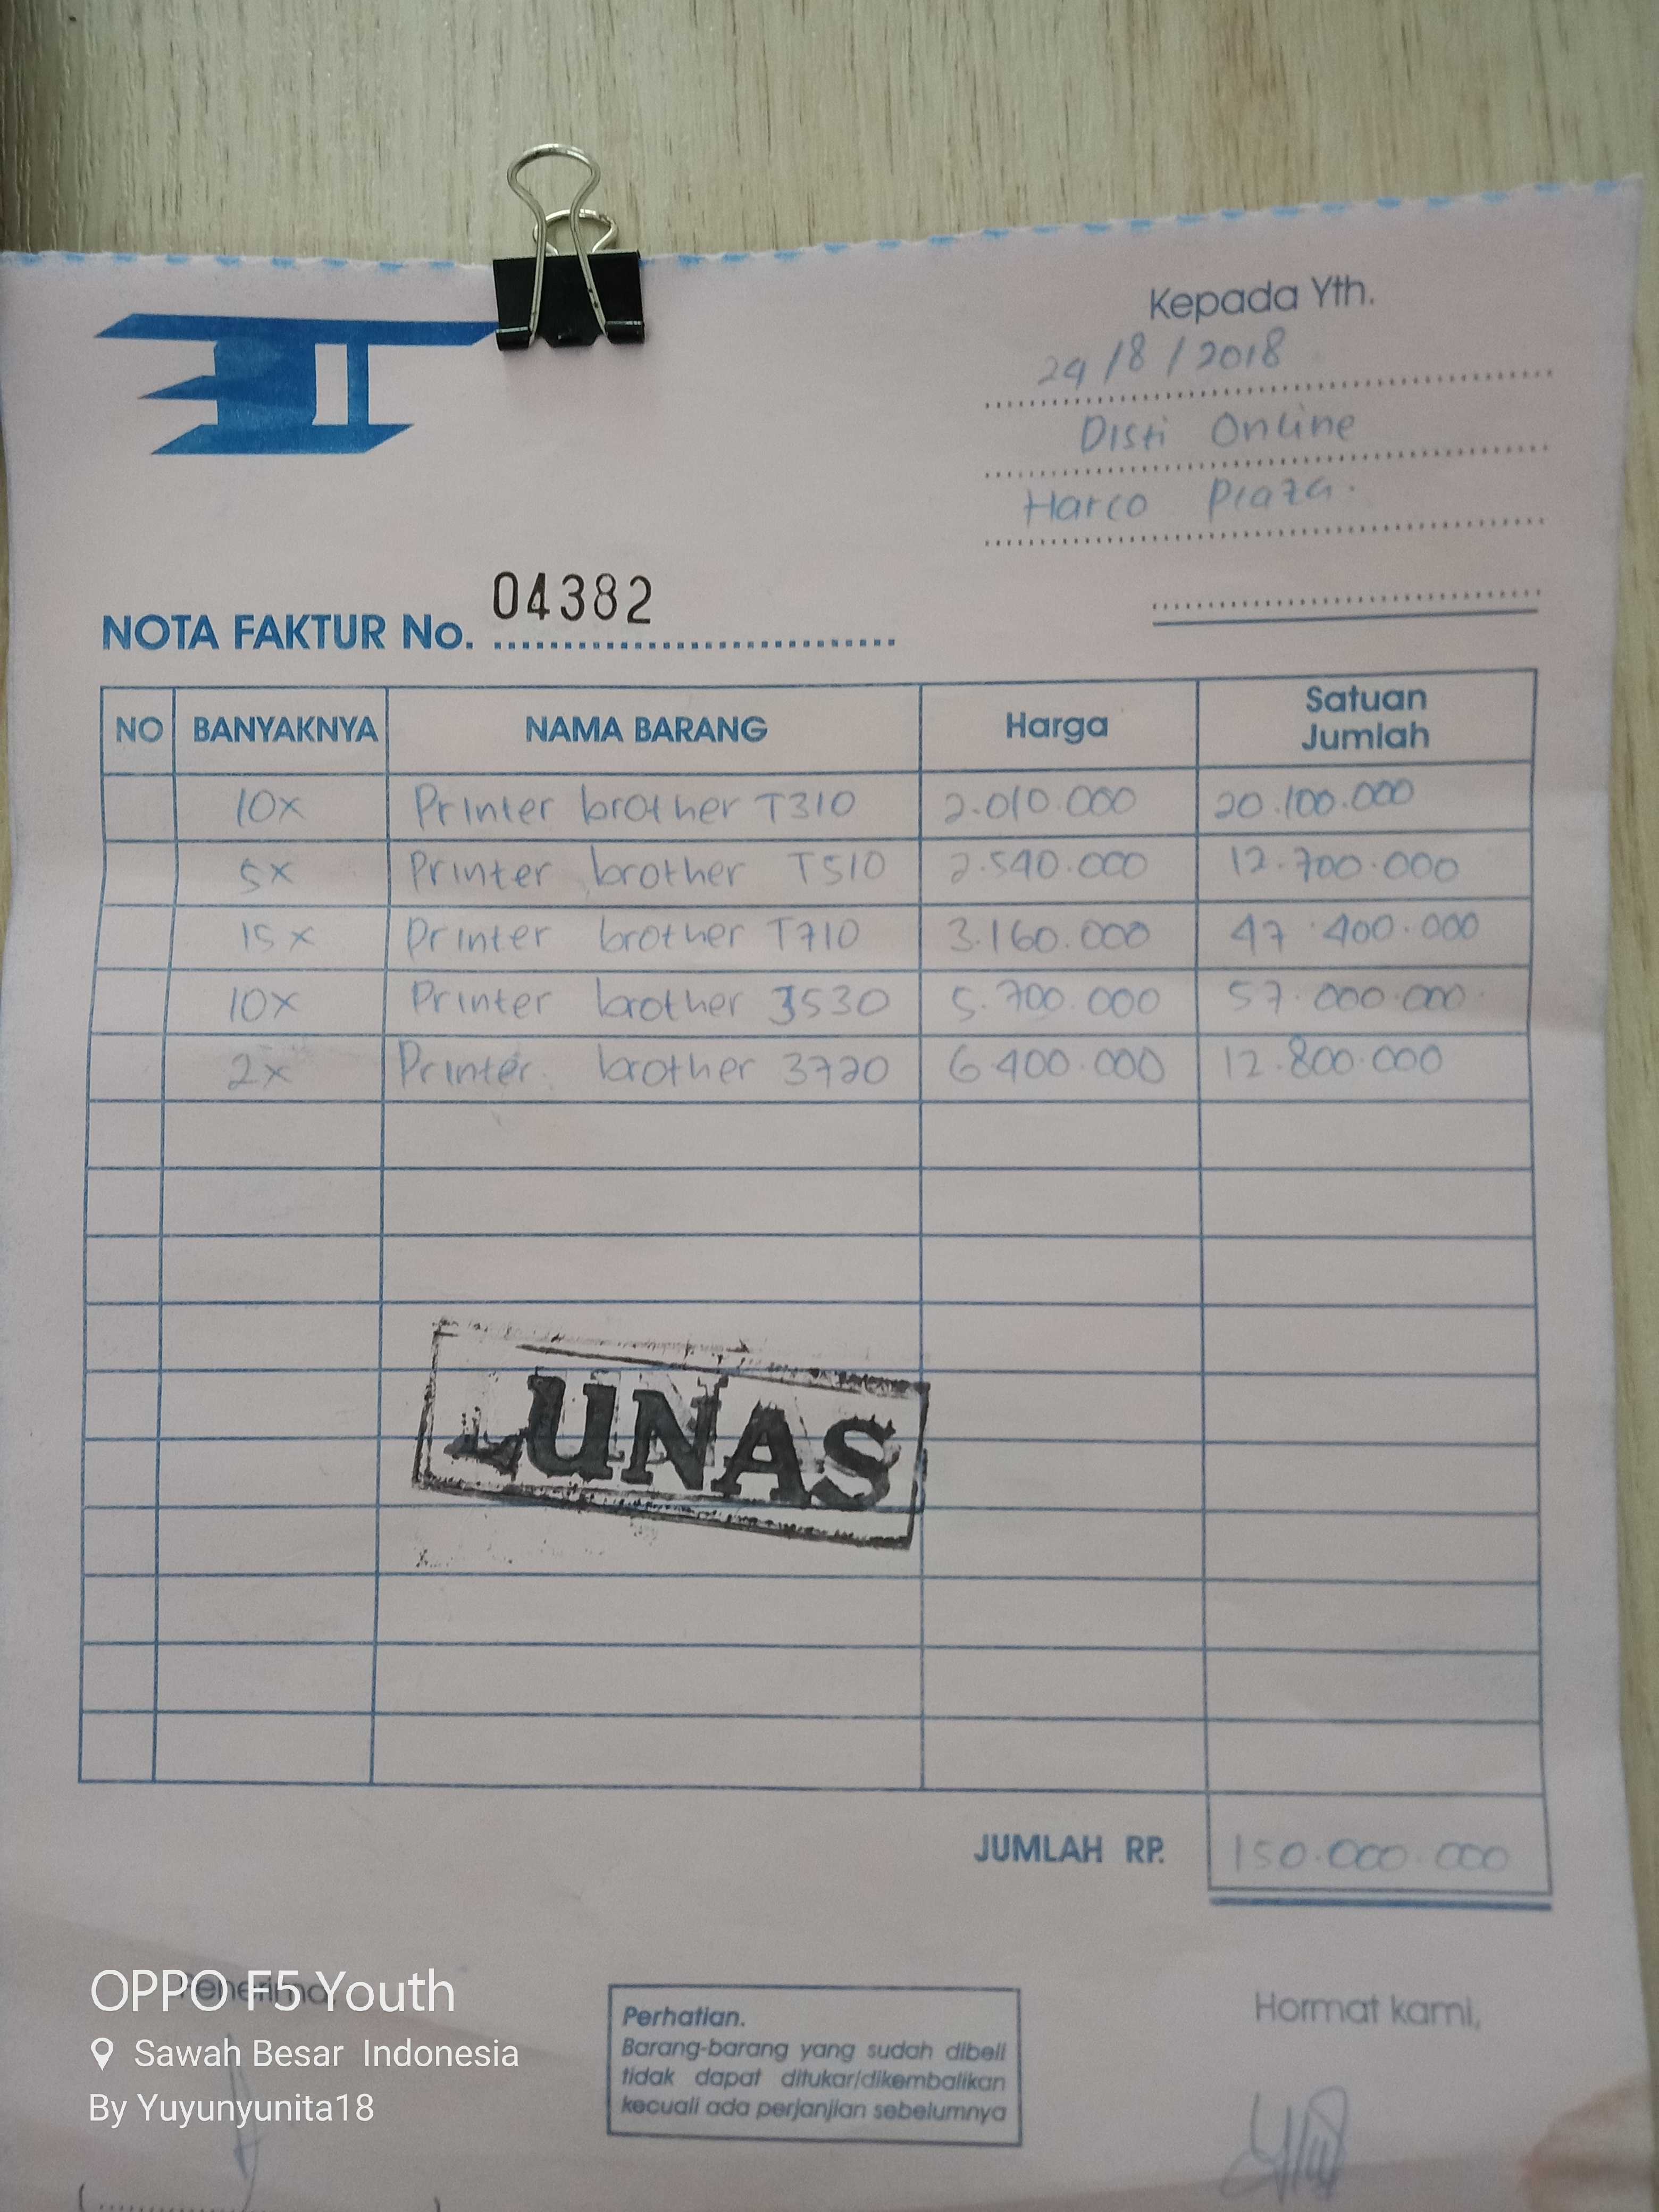 Kepada Yth.
24/8/2018
Disti Online
Harco Plaza.
NOTA FAKTUR No. 04382
NO BANYAKNYA NAMA BARANG Harga Satuan Jumlah
10x Printer brother T310 2.010.000 20.100.000
5x Printer brother T510 2.540.000 12.700.000
15x Printer brother T710 3.160.000 47.400.000
10x Printer brother 3530 5.700.000 57.000.000
2x Printer brother 3720 6.400.000 12.800.000
LUNAS
JUMLAH RP. 150.000.000
Penerima,
Perhatian.
Barang-barang yang sudah dibeli
tidak dapat ditukar/dikembalikan
kecuali ada perjanjian sebelumnya
Hormat kami,
OPPO F5 Youth
Sawah Besar Indonesia
By Yuyunyunita18